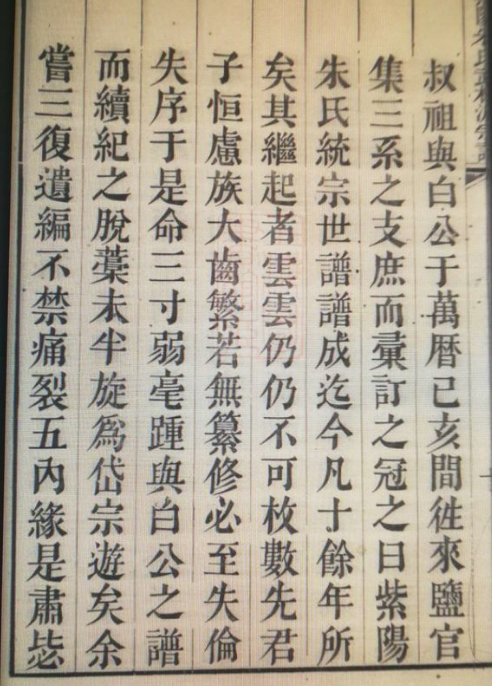 叔祖與白公于萬曆己亥間徃來鹽官
集三系之支庶而彙訂之冠之曰紫陽
朱氏統宗世譜譜成迄今凡十餘年所
矣其繼起者雲雲仍仍不可枚數先君
子恒慮族大齒繁若無纂修必至失倫
失序于是命三寸弱毫踵與白公之譜
而續紀之脫藁未半旋為岱宗遊矣余
嘗三復遺編不禁痛裂五內緣是肅毖